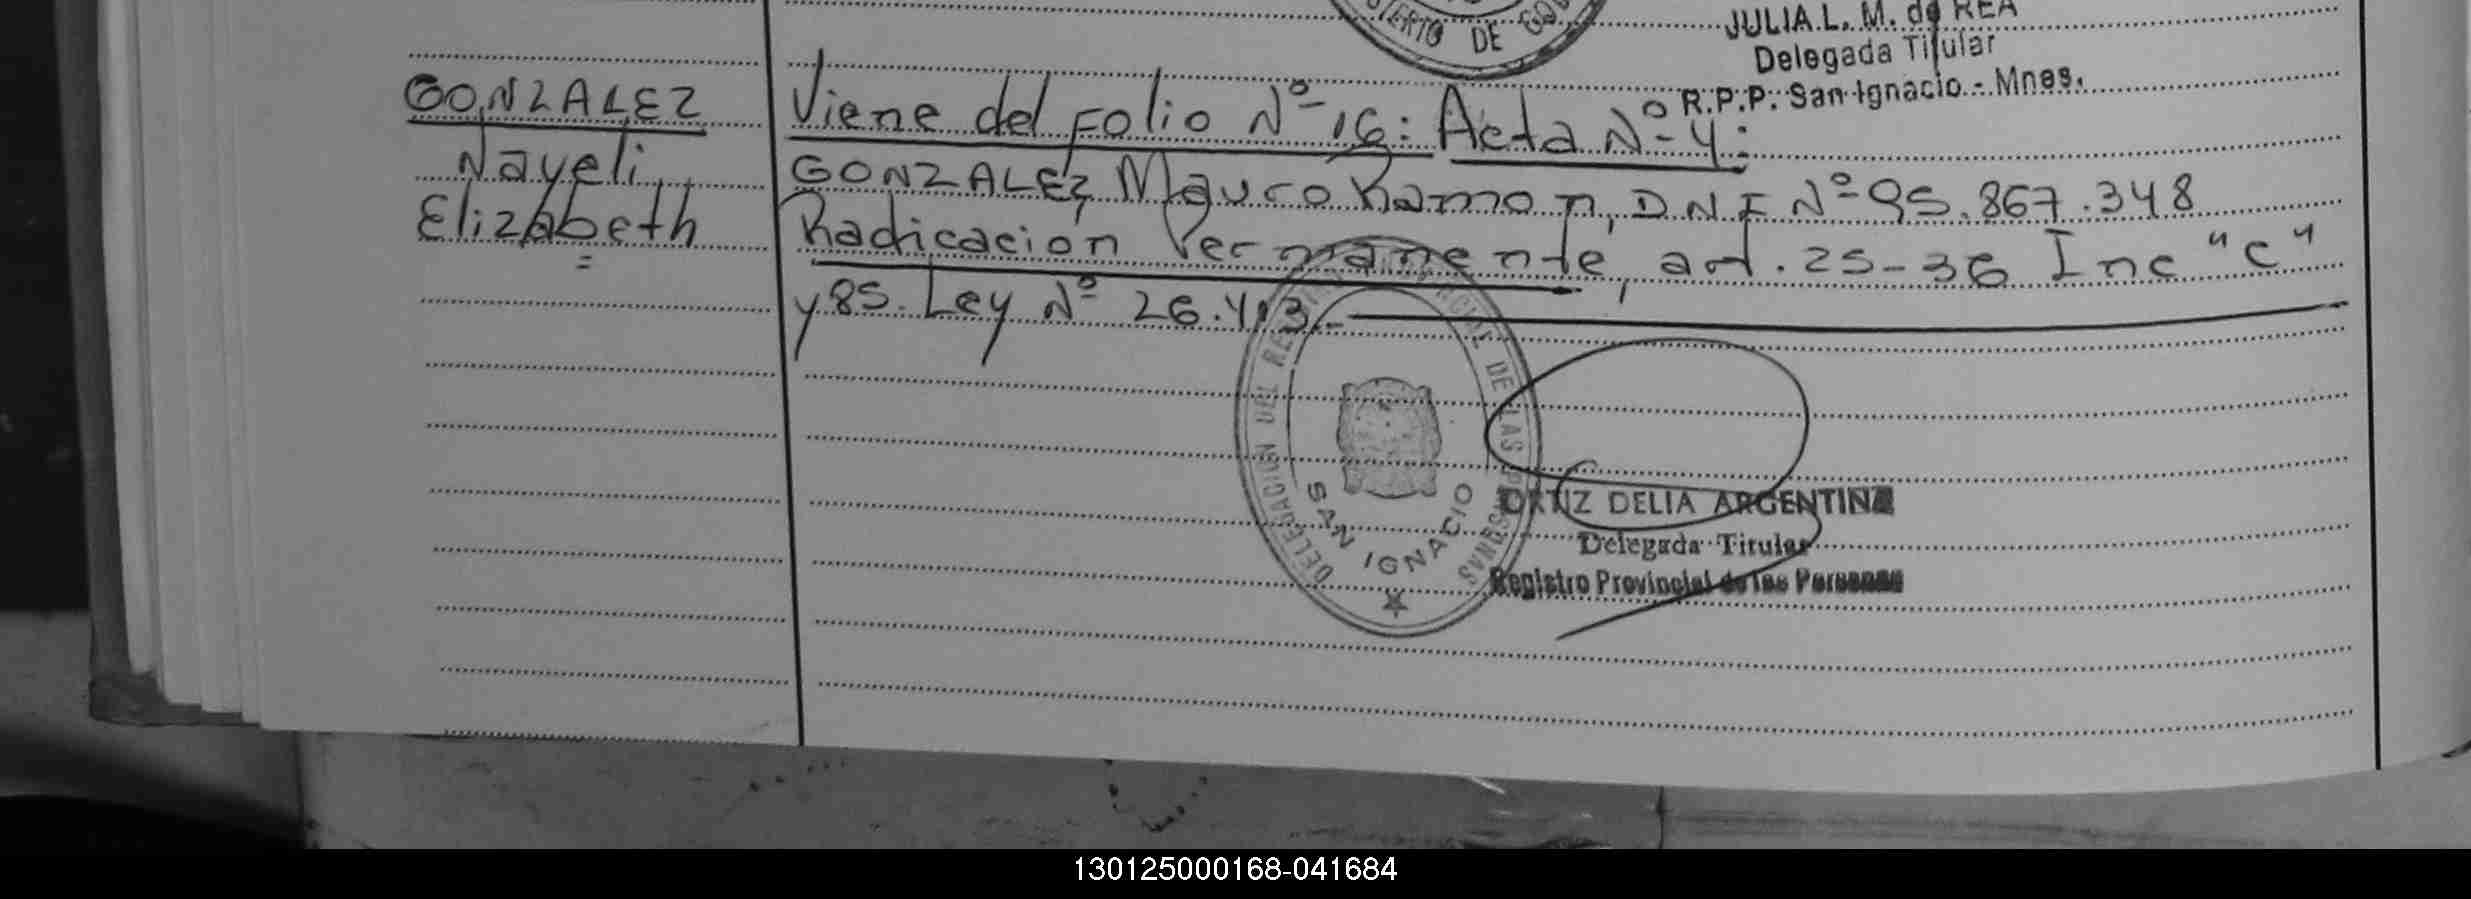 JULIA L. M. de REA
Delegada Titular
R.P.P. San Ignacio - Mnes.
DE
GONZALEZ
Nayeli
Elizabeth
Viene del Folio Nº 16: Acta Nº 4:
GONZALEZ, Mauro Ramon, DNI Nº 95.867.348
Radicación Permanente, art. 25-36 Inc "c"
y 85. Ley Nº 26.413.-
DELEGACIÓN DEL REGISTRO PROVINCIAL DE LAS PERSONAS
SAN IGNACIO
ORTIZ DELIA ARGENTINA
Delegada Titular
Registro Provincial de las Personas
130125000168-041684